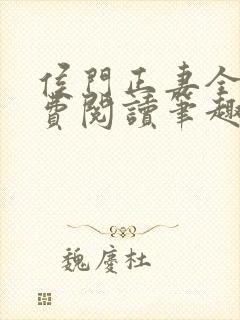 侯門正妻全
費閱讀筆趣
魏慶杜